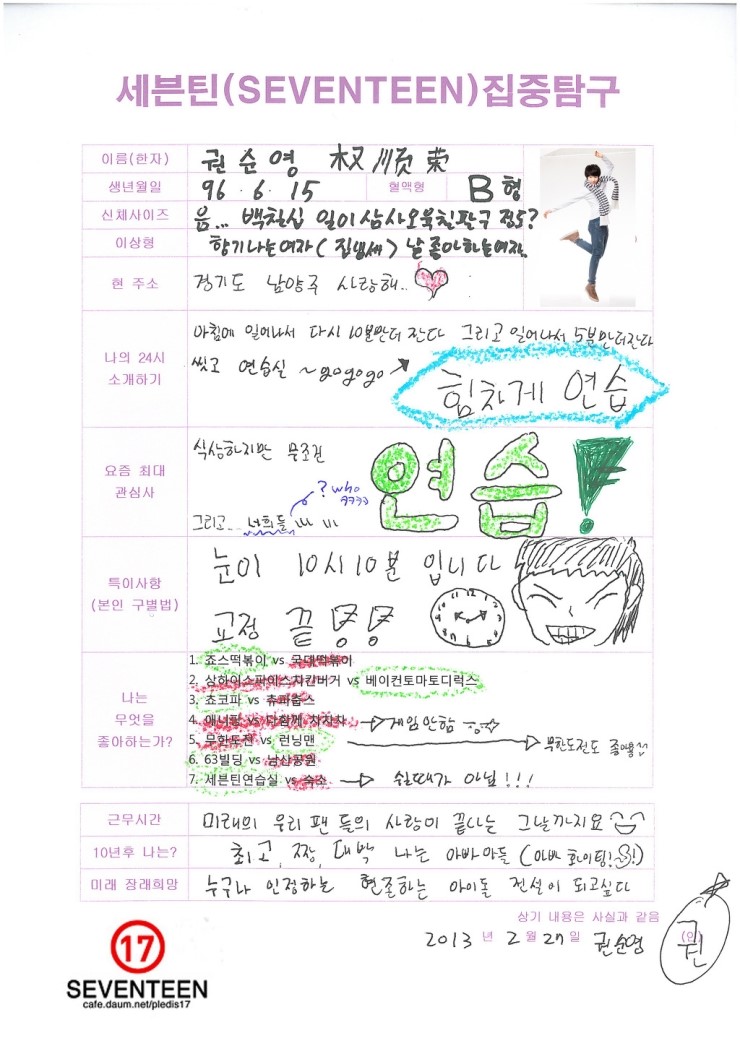 세븐틴(SEVENTEEN)집중탐구
이름(한자) 권순영 权順荣
생년월일 96. 6. 15 혈액형 B형
신체사이즈 음... 백칠십 일이삼사오육칠팔구 점5?
이상형 향기나는여자 (집냄새) 날 좋아하는여자.
현 주소 경기도 남양주 사랑해..
나의 24시 소개하기
아침에 일어나서 다시 10분만더 잔다 그리고 일어나서 5분만더잔다
씻고 연습실 ~gogogo
힘차게 연습
요즘 최대 관심사
식상하지만 무조건
연습!
? who
ㅋㅋㅋ
그리고.. 너희들
특이사항
(본인 구별법)
눈이 10시 10분 입니다
교정 끝
나는 무엇을 좋아하는가?
1. 죠스떡볶이 vs 국대떡볶이
2. 상하이스파이스치킨버거 vs 베이컨토마토디럭스
3. 쵸코파 vs 츄파춥스
4. 애니팡 vs 다함께 차차차 게임안함
5. 무한도전 vs 런닝맨 무한도전도 좋
6. 63빌딩 vs 남산공원
7. 세븐틴연습실 vs 숙소 쉴때가 아님!!!
근무시간 미래의 우리 팬 들의 사랑이 끝나는 그날까지요
10년후 나는? 최고, 짱, 대박 나는 아빠아들 (아빠 화이팅!!)
미래 장래희망 누구나 인정하는 현존하는 아이돌 전설이 되고싶다
상기 내용은 사실과 같음
2013 년 2 월 27 일 권순영 (인) 권
17
SEVENTEEN
cafe.daum.net/pledis17